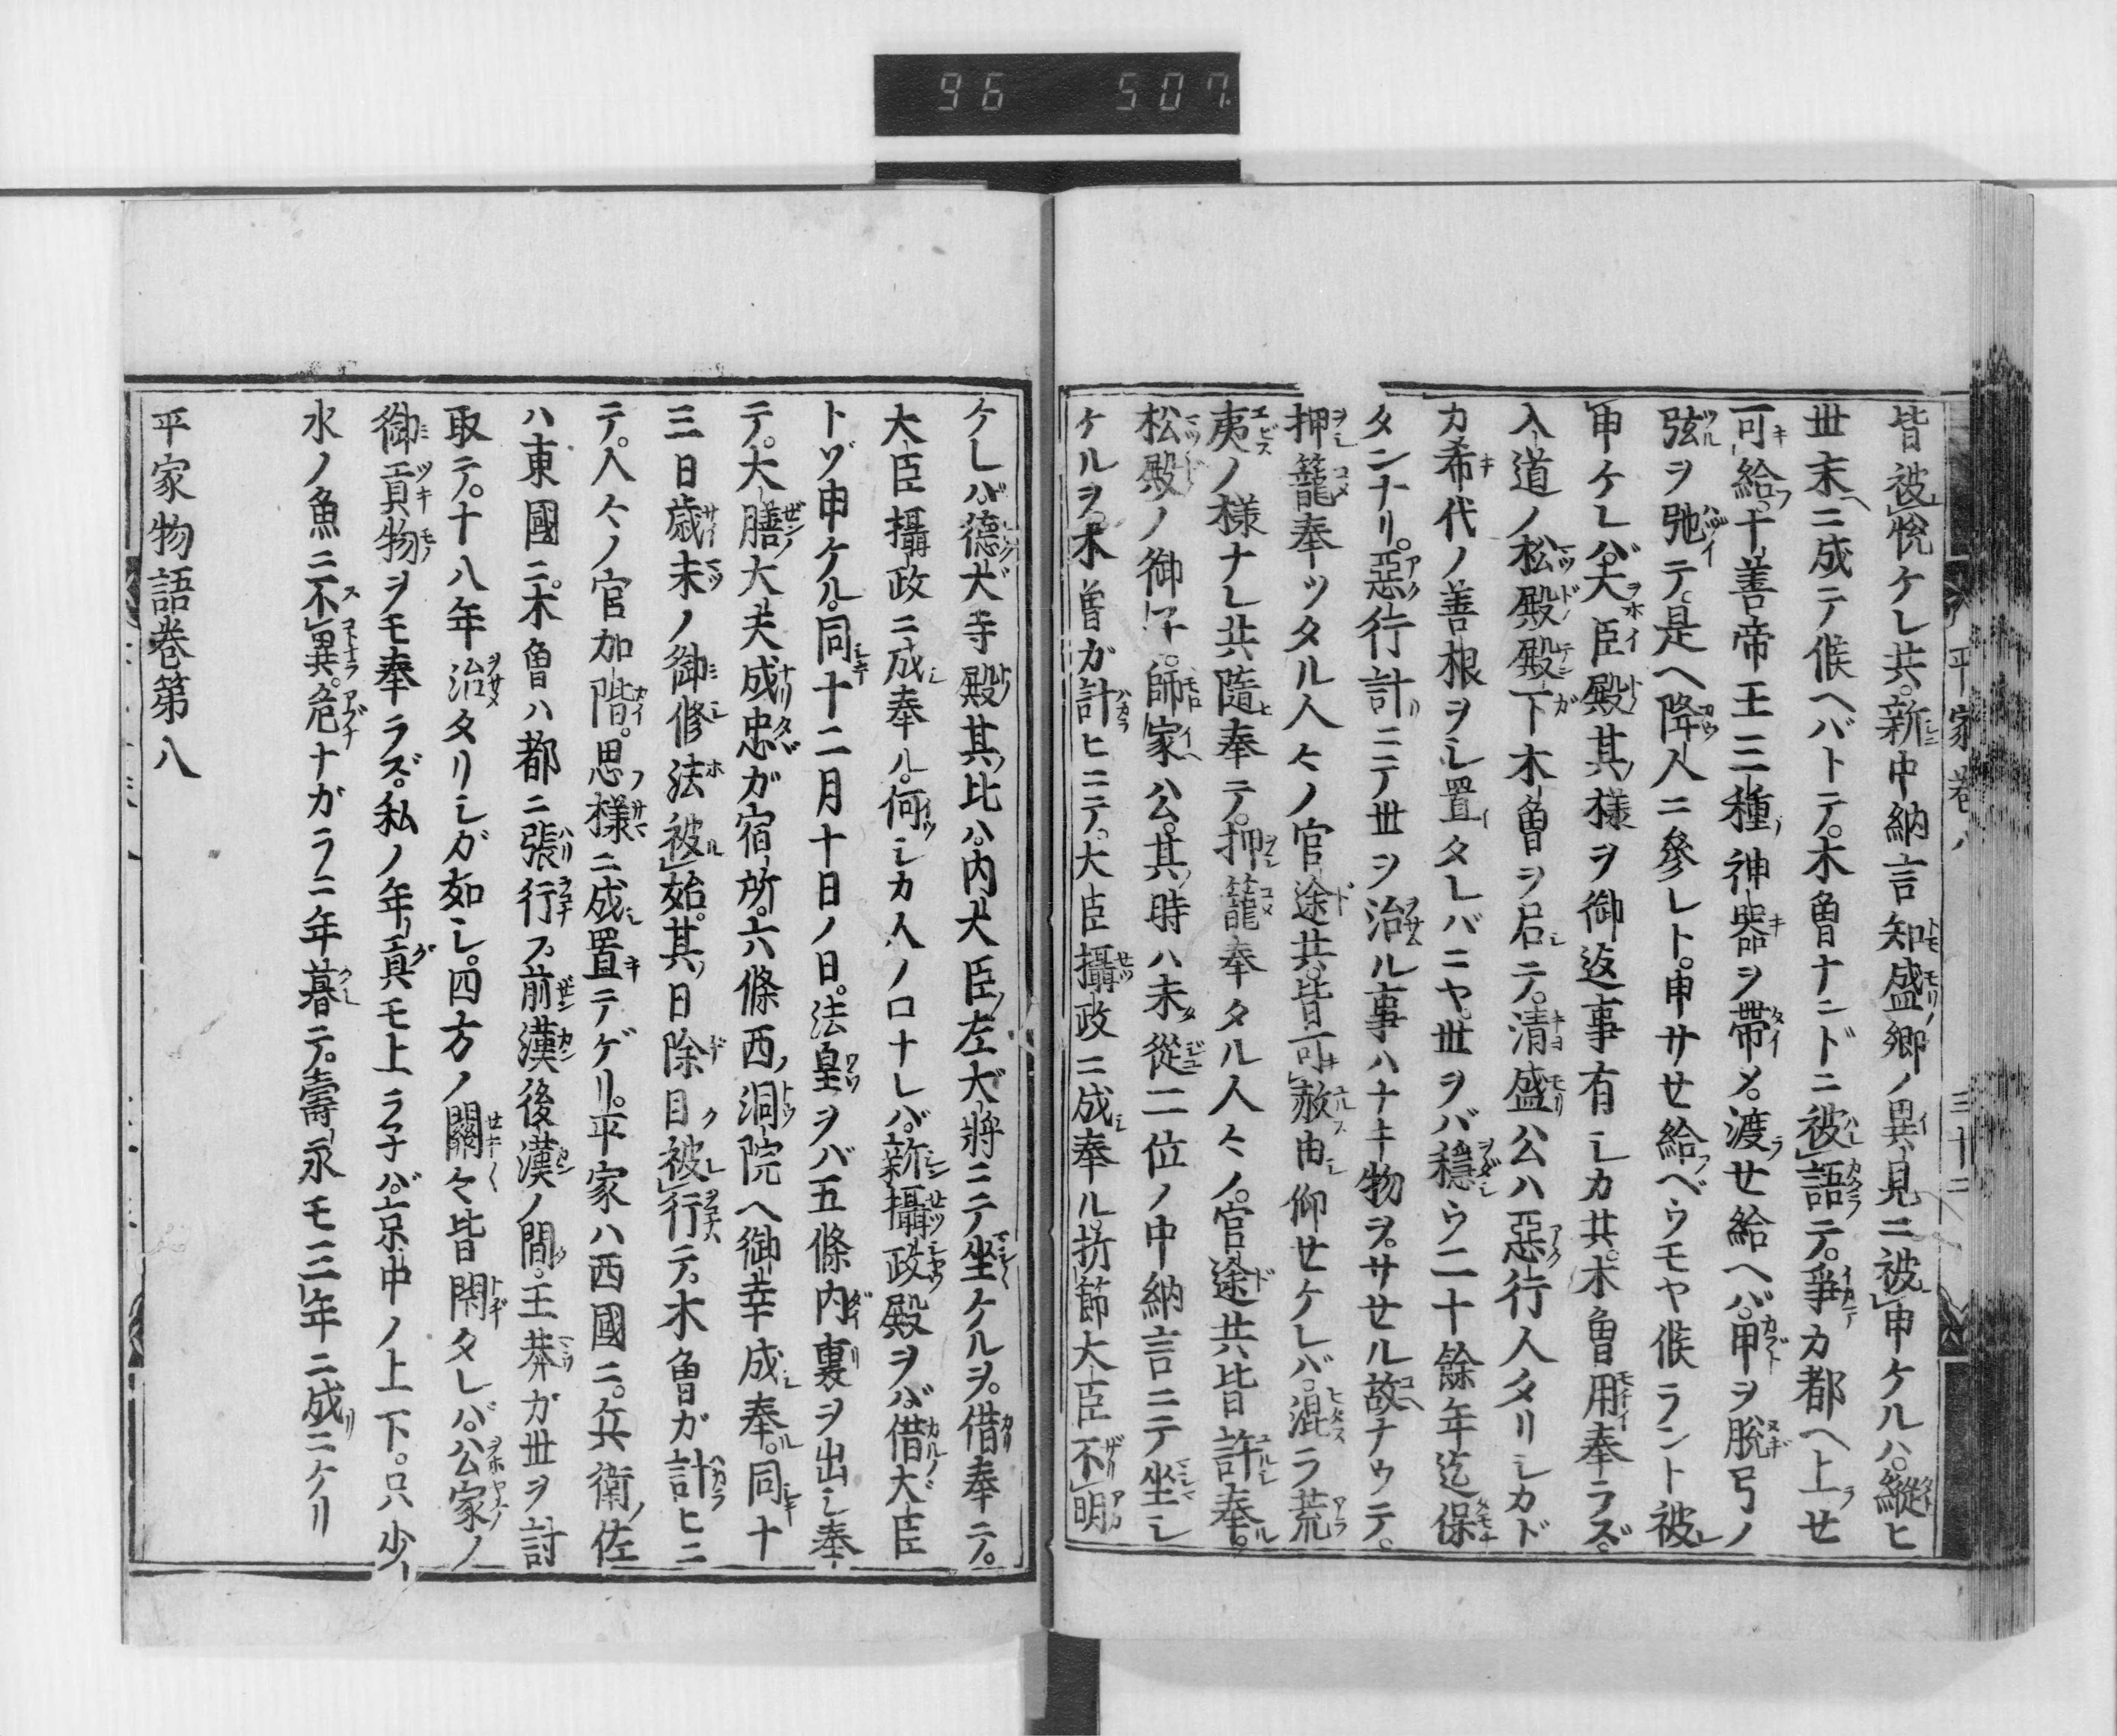 96 507
平家巻八 三十二
皆被悦ケレ共。新中納言知盛卿ノ異見ニ被申ケルハ。縱ヒ
世末ニ成テ候ヘバトテ。木曽ナンドニ被語テ。爭カ都ヘ上セ
可給。十善帝王三種神器ヲ帶メ。渡セ給ヘバ。甲ヲ脱弓ノ
弦ヲ弛テ。是ヘ降人ニ參レト。申サセ給ベウモヤ候ラント被
申ケレバ。大臣殿其様ヲ御返事有シカ共。木曽用奉ラズ。
入道ノ松殿殿下木曽ヲ召テ。清盛公ハ惡行人タリシカド
カ希代ノ善根ヲシ置タレバニヤ。世ヲバ穩ウ二十餘年迄保
タンナリ。惡行計ニテ世ヲ治ル事ハナキ物ヲ。サセル故ナウテ。
押籠奉ツタル人々ノ官途共。皆可赦由仰セケレバ。混ラ荒
夷ノ様ナレ共隨奉テ。押籠奉タル人々ノ。官途共皆許奉ル。
松殿ノ御子。師家公。其時ハ未從二位ノ中納言ニテ坐シ
ケルヲ。木曽ガ計ヒニテ。大臣攝政ニ成奉ル。折節大臣不明
ケレバ。德大寺殿其比ハ。内大臣左大將ニテ坐ケルヲ。借奉テ。
大臣攝政ニ成奉ル。何シカ人ノ口ナレバ。新攝政殿ヲバ。借大臣
トゾ申ケル。同十二月十日ノ日。法皇ヲバ五條内裏ヲ出シ奉
テ。大膳大夫成忠ガ宿所。六條西洞院ヘ御幸成奉ル。同十
三日歳末ノ御修法被始。其日除目被行テ。木曽ガ計ヒニ
テ。人々ノ官加階。思様ニ成置テゲリ。平家ハ西國ニ。兵衛佐
ハ東國ニ。木曽ハ都ニ張行フ。前漢後漢ノ間。王莽ガ世ヲ討
取テ。十八年治タリシガ如シ。四方ノ關々皆閉タレバ。公家ノ
御貢物ヲモ奉ラズ。私ノ年貢モ上ラネバ。京中ノ上下。只少
水ノ魚ニ不異。危ナガラニ年暮テ。壽永モ三年ニ成ニケリ
平家物語巻第八